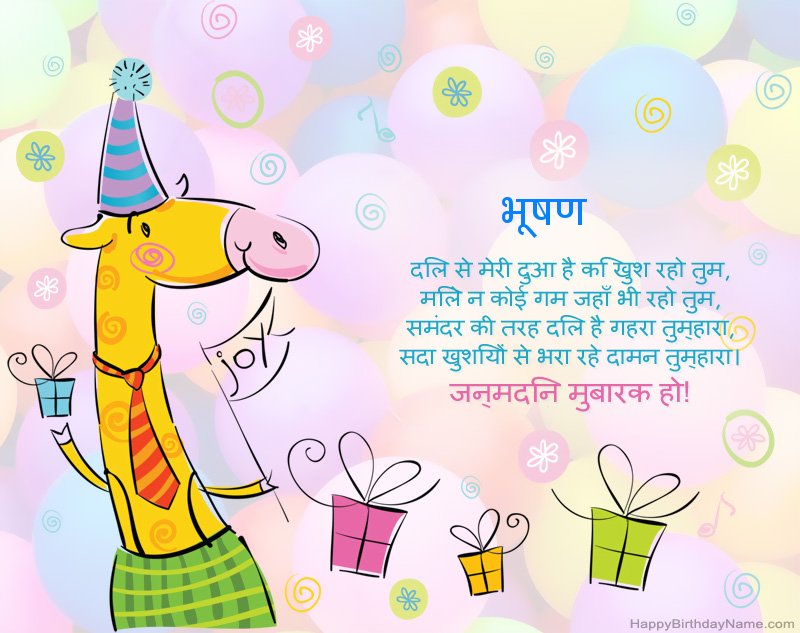 भूषण
joy
दिल से मेरी दुआ है कि खुश रहो तुम,
मिले न कोई गम जहाँ भी रहो तुम,
समंदर की तरह दिल है गहरा तुम्हारा,
सदा खुशियों से भरा रहे दामन तुम्हारा।
जन्मदिन मुबारक हो!
HappyBirthdayName.com